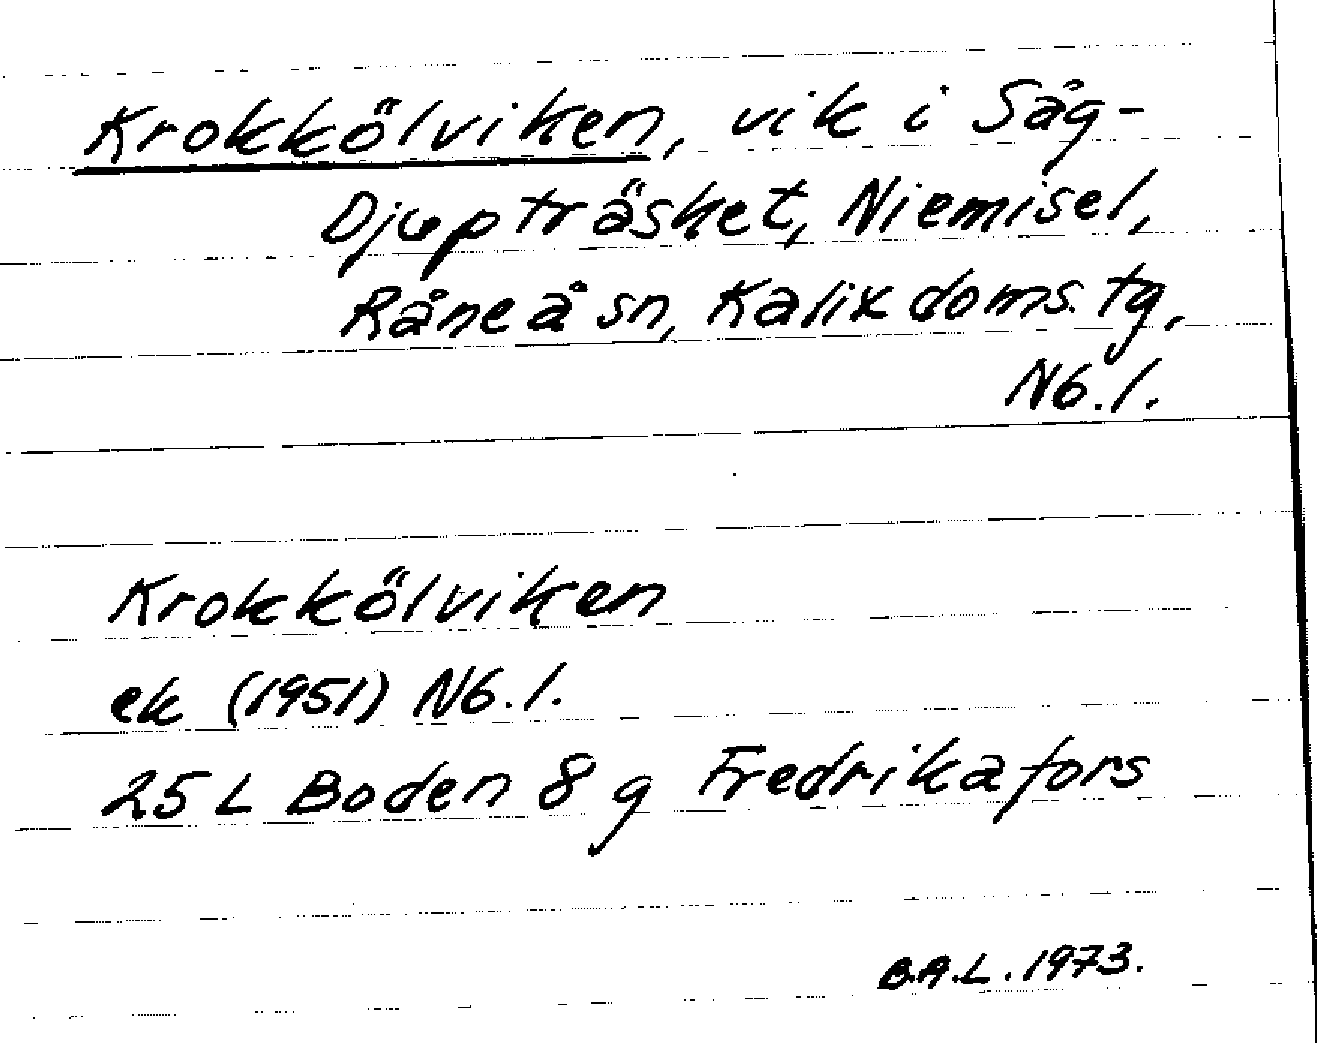 Krokkölviken, vik i Såg-
Djupträsket, Niemisel,
Råneå sn, Kalix doms. tg,
Nb. l.
Krokkölviken
ek (1951) Nb. l.
25 L Boden 8 g Fredrikafors
B.A.L. 1973.